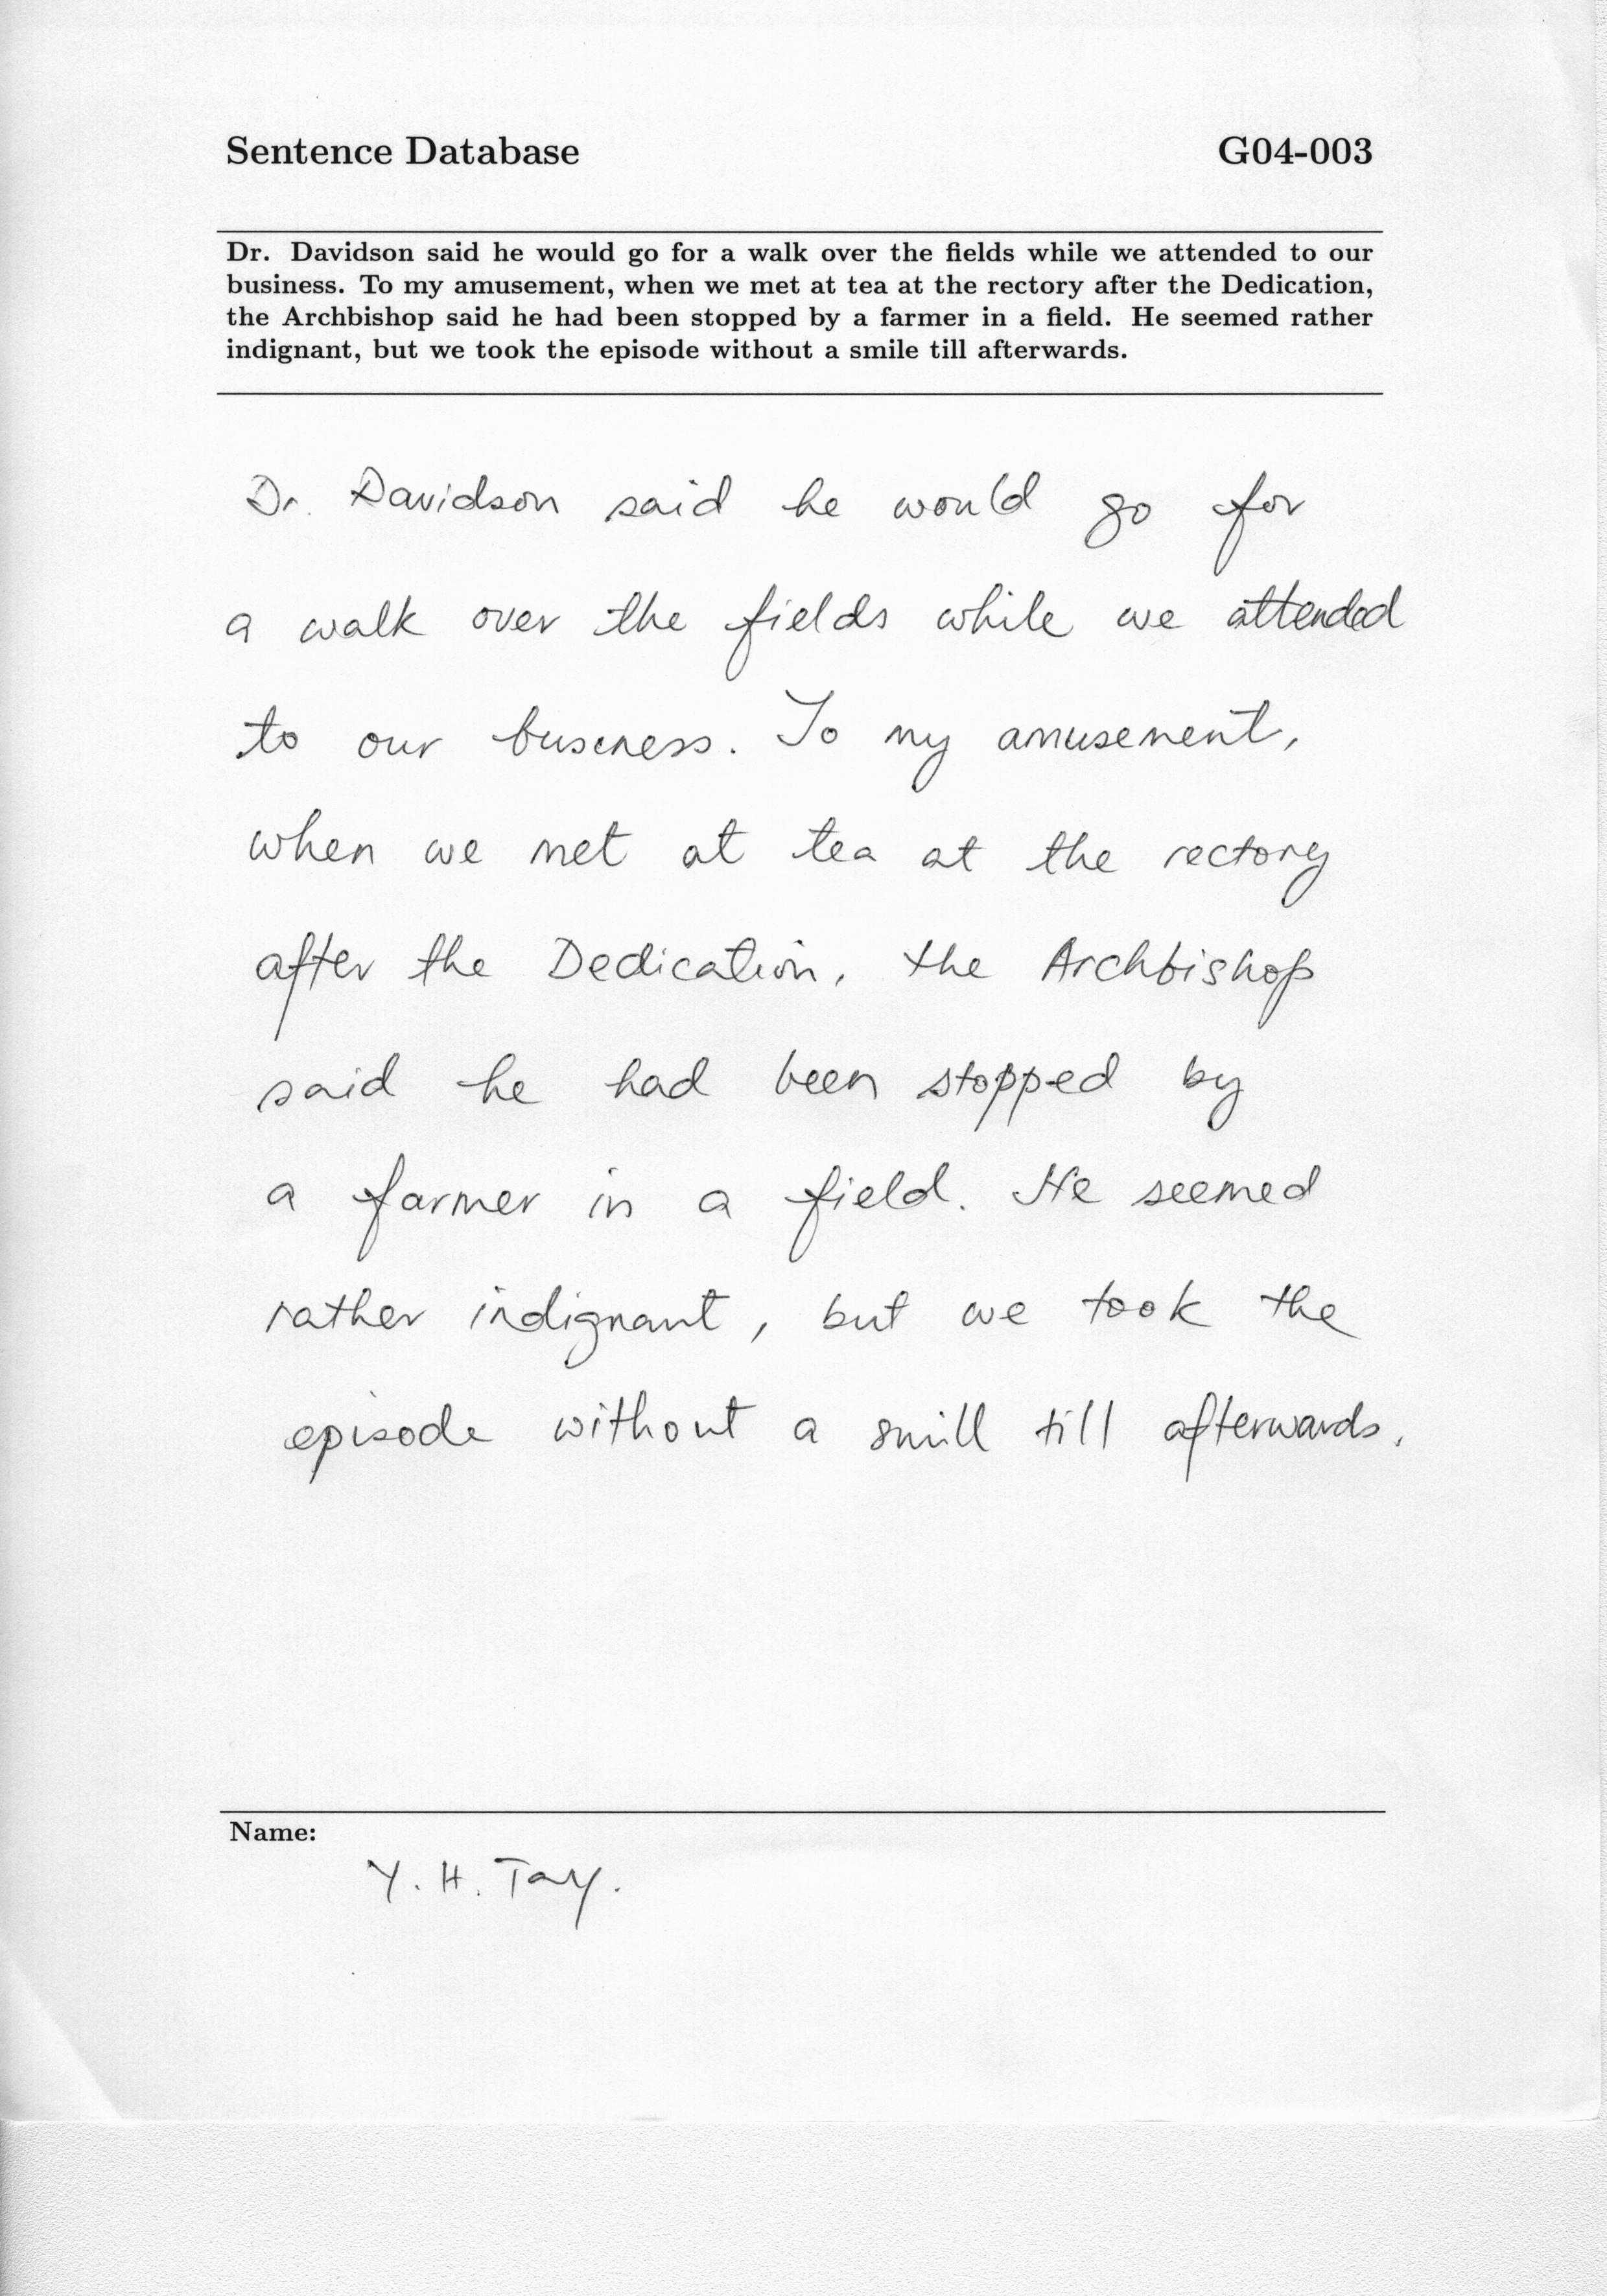 Sentence Database G04-003
Dr. Davidson said he would go for a walk over the fields while we attended to our
business. To my amusement, when we met at tea at the rectory after the Dedication,
the Archbishop said he had been stopped by a farmer in a field. He seemed rather
indignant, but we took the episode without a smile till afterwards.
Dr. Davidson said he would go for
a walk over the fields while we attended
to our business. To my amusement,
when we met at tea at the rectory
after the Dedication, the Archbishop
said he had been stopped by
a farmer in a field. He seemed
rather indignant, but we took the
episode without a smill till afterwards.
Name:
Y. H. Tay.